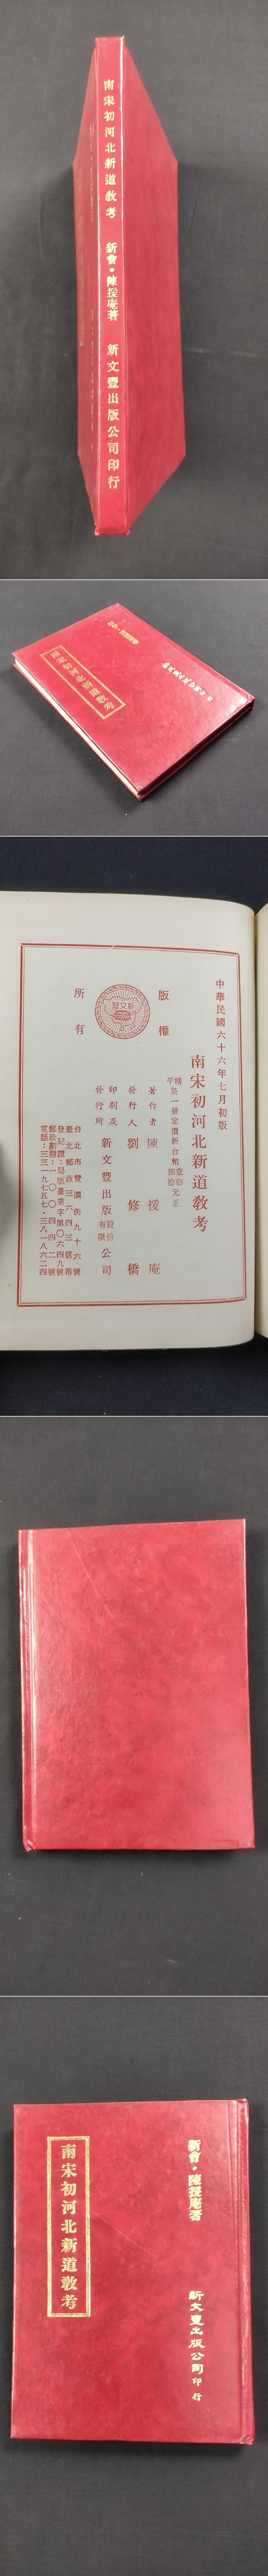 南宋初河北新道教考 新會·陳援庵著 新文豐出版公司印行
南宋初河北新道教考
新文豐出版公司印行
中華民國六十六年七月初版
南宋初河北新道教考
精裝一册定價新台幣壹佰
平 捌拾元正
著作者 陳援庵
發行人 劉修橋
印刷及
發行所 新文豐出版股份有限公司
台北市雙園街九十六號
臺北郵政三六四三信箱
登記證:局版臺業字第〇六四九號
郵政劃撥:一〇〇四四二號
電話:三三一九七五七·三八一八六二四
版權
所有
新文豐
新會·陳援庵著
新文豐出版公司印行
南宋初河北新道教考